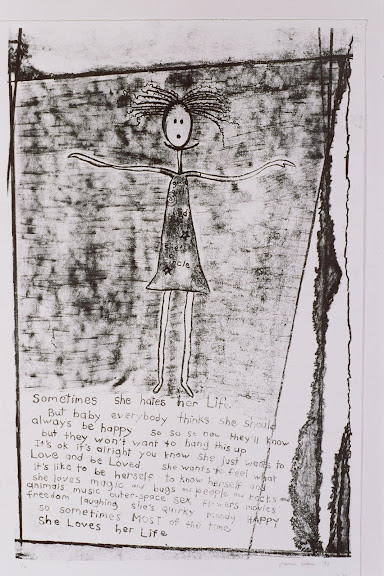 Sometimes she hates her Life
But baby everybody thinks she should
always be happy so so so now they'll know
but they won't want to hang this up
It's ok it's alright you know she just wants to
Love and be Loved she wants to feel what
it's like to be herself to know herself
she loves magic and bugs and people and rocks and
animals music outer-space sex flowers movies
freedom laughing she's quirky moody HAPPY
so sometimes MOST of the time
She Loves her Life